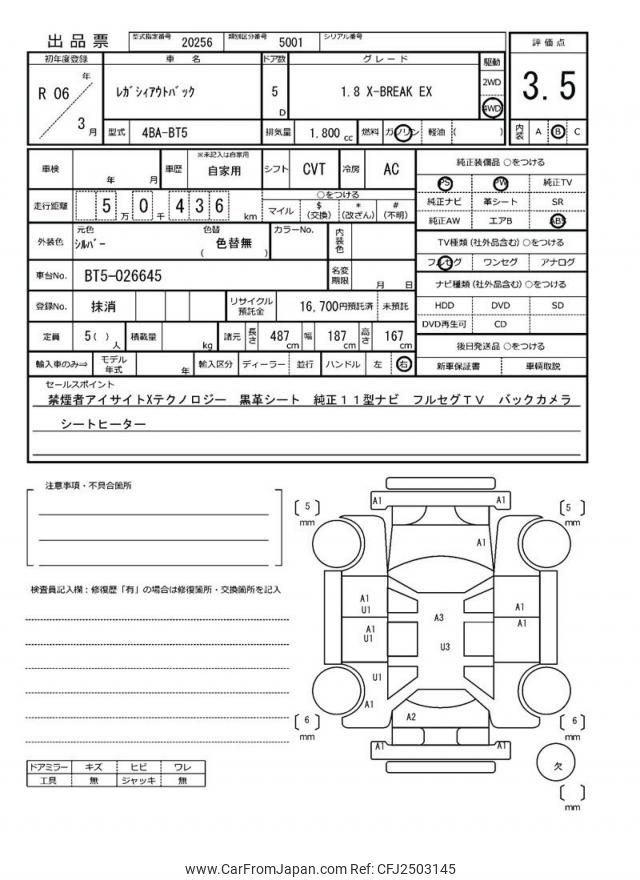 出品票
型式指定番号 20256 類別区分番号 5001 シリアル番号
初年度登録 車名 ドア数 グレード 駆動 評価点
R 06 年 3 月
ﾚｶﾞｼｨｱｳﾄﾊﾞｯｸ
5 D
1.8 X-BREAK EX
2WD
4WD
3.5
型式 4BA-BT5 排気量 1,800 cc 燃料 ガソリン 軽油 ( )
内装 A B C
車検 年 月 車歴 ※未記入は自家用 自家用 シフト CVT 冷房 AC
走行距離 5 万 0 千 4 3 6 km
○をつける
マイル $ (交換) * (改ざん) # (不明)
外装色 元色 ｼﾙﾊﾞｰ 色替 ( 色替無 ) カラーNo. 内装色
車台No. BT5-026645 名変期限 月 日
登録No. 抹消 リサイクル預託金 16,700円預託済 未預託
定員 5( ) 人 積載量 kg 諸元 長さ 487 cm 幅 187 cm 高さ 167 cm
輸入車のみ⇒ モデル年式 年 輸入区分 ディーラー 並行 ハンドル 左 右
純正装備品 ○をつける
PS PW 純正TV
純正ナビ 革シート SR
純正AW エアB ABS
TV種類 (社外品含む) ○をつける
フルセグ ワンセグ アナログ
ナビ種類 (社外品含む) ○をつける
HDD DVD SD
DVD再生可 CD
後日発送品 ○をつける
新車保証書 車輌取説
セールスポイント
禁煙者アイサイトXテクノロジー 黒革シート 純正11型ナビ フルセグTV バックカメラ
シートヒーター
注意事項・不具合箇所
検査員記入欄：修復歴「有」の場合は修復箇所・交換箇所を記入
ドアミラー キズ ヒビ ワレ
工具 無 ジャッキ 無
A1 A1
5 mm
5 mm
A1
A1
U1
A1
A1
U1
A1
A3
U3
U1
A1
A2
6 mm
6 mm
A1 A1
欠
mm
www.CarFromJapan.com Ref: CFJ2503145